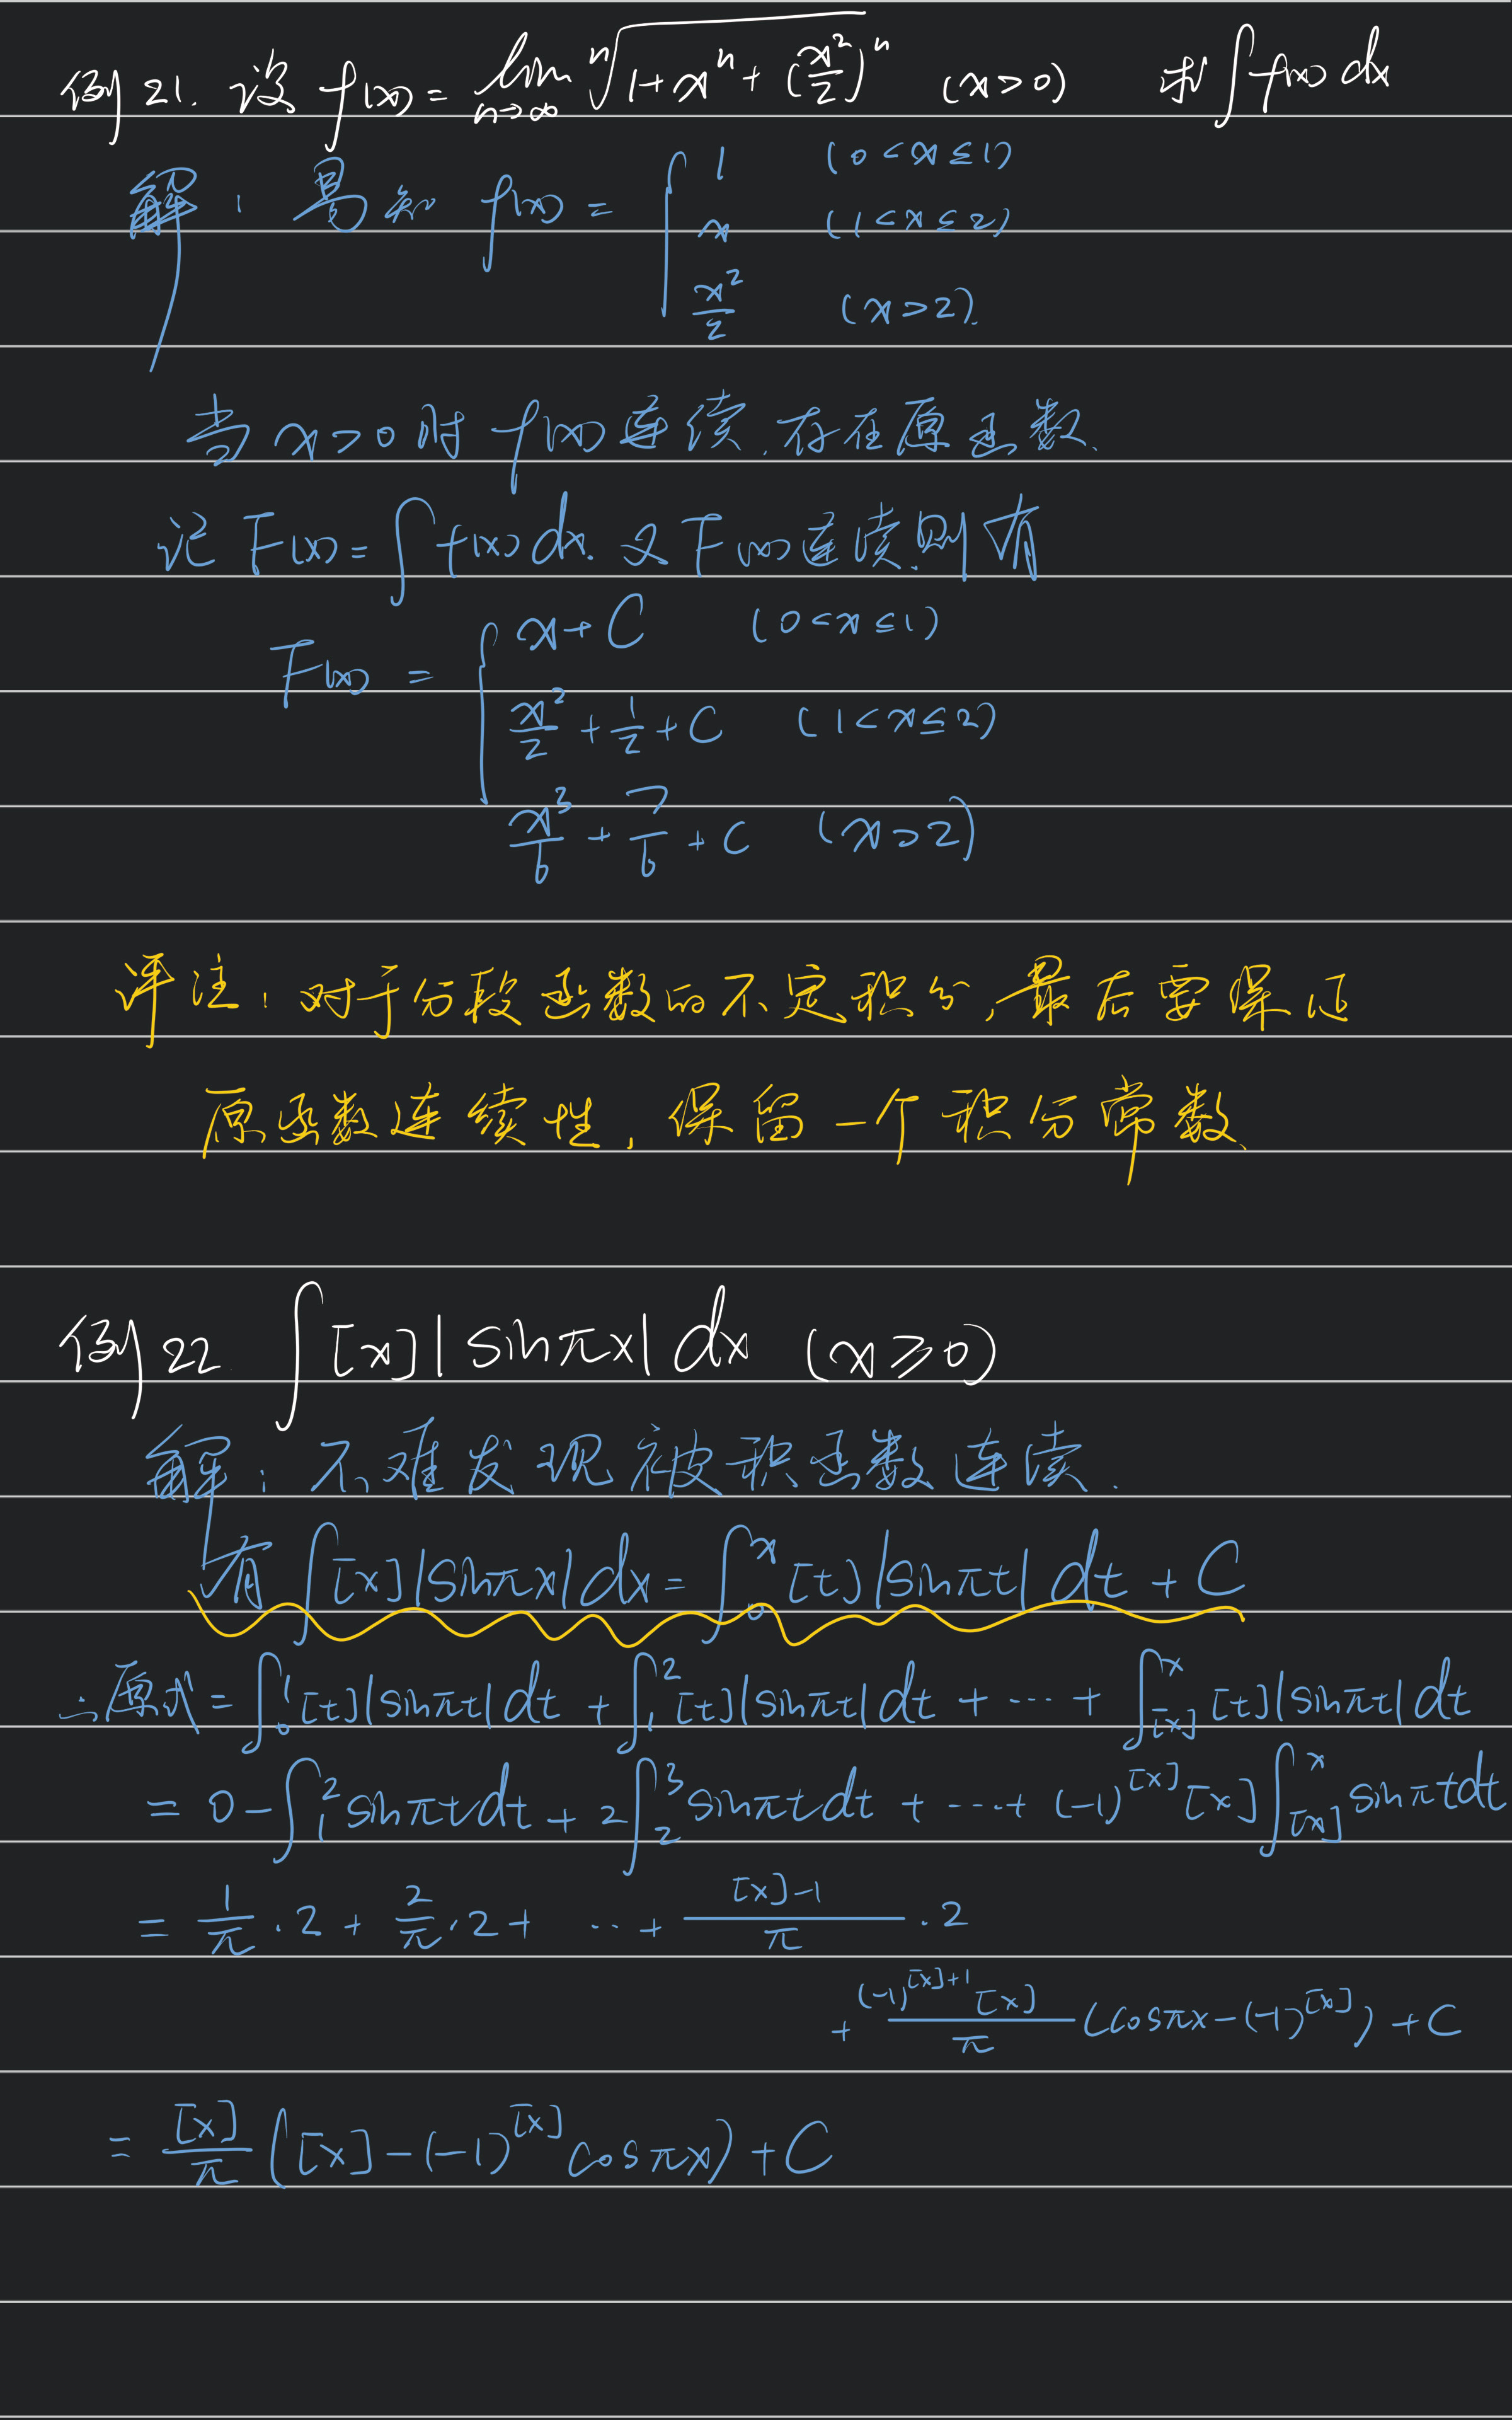 例21. 设 f(x) = lim_{n→∞} ⁿ√(1+xⁿ+(x²/2)ⁿ) (x>0) 求∫f(x)dx
解: 易知 f(x) = { 1 (0<x≤1)
x (1<x≤2)
x²/2 (x>2).
当 x>0 时 f(x) 连续.存在原函数.
记 F(x)=∫f(x)dx. 又 F(x)连续.则有
F(x) = { x+C (0<x≤1)
x²/2 + 1/2 + C (1<x≤2)
x³/6 + 7/6 + C (x>2)
评注: 对于分段函数的不定积分,最后要保证
原函数连续性, 保留一个积分常数.
例22. ∫[x]|sinπx|dx (x≥0)
解: 不难发现被积函数连续.
有∫[x]|sinπx|dx = ∫₀ˣ[t]|sinπt|dt + C
∴原式 = ∫₀¹[t]|sinπt|dt + ∫₁²[t]|sinπt|dt + ··· + ∫_{[x]}^{x}[t]|sinπt|dt
= 0 - ∫₁²sinπtdt + 2∫₂³sinπtdt + ··· + (-1)^{[x]}[x]∫_{[x]}^{x}sinπtdt
= 1/π · 2 + 2/π · 2 + ··· + ([x]-1)/π · 2
+ (-1)^{[x]+1}[x]/π (cosπx-(-1)^{[x]}) + C
= [x]/π ([x]-(-1)^{[x]}cosπx) + C